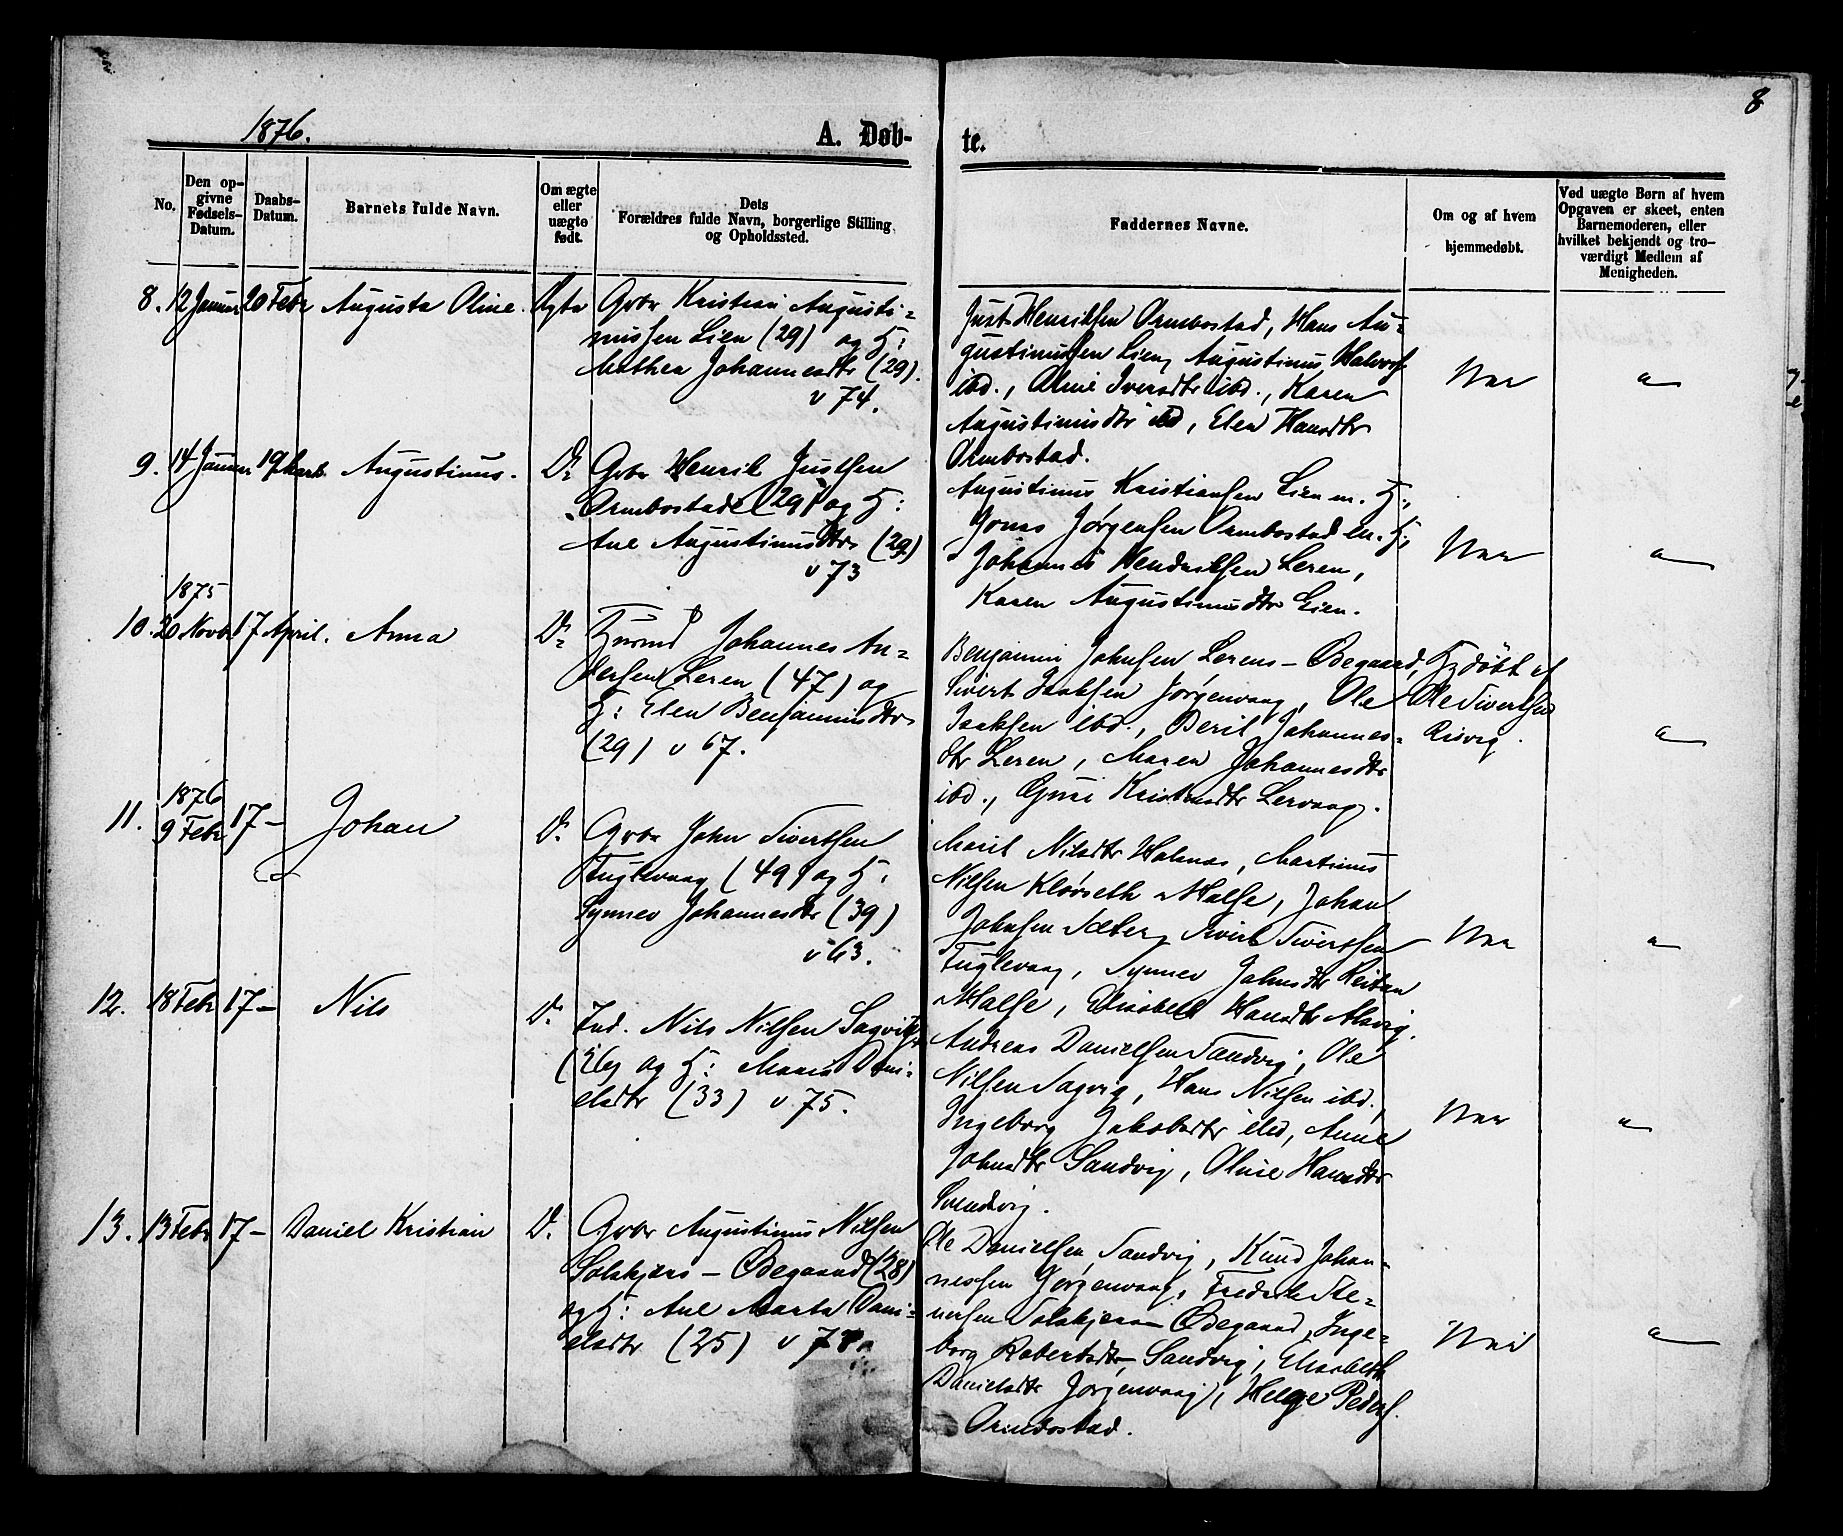 8
1876.
A. Døb-
te.
No.
Den op-
givne
Fødsels-
Datum.
Daabs-
Datum.
Barnets fulde Navn.
Om ægte
eller
uægte
født.
Dets
Forældres fulde Navn, borgerlige Stilling
og Opholdssted.
Faddernes Navne.
Om og af hvem
hjemmedøbt.
Ved uægte Børn af hvem
Opgaven er skeet, enten
Barnemoderen, eller
hvilket bekjendt og tro-
værdigt Medlem af
Menigheden.
8. 12 Januar 20 Febr Augusta Oline. Ægte
Gbr Kristian Augusti-
nussen Lien (29) og H:
Mathea Johannesdtr (29).
v 74.
Just Henriksen Ormbostad, Hans Au-
gustinussen Lien, Augustinus Halvors.
ibd., Oline Iversdtr ibd., Karen
Augustinusdtr ibd, Elen Hansdtr
Ormbostad.
Nei
9. 14 Januar 19 Marts Augustinus. Do
Gbr Henrik Justsen
Ormbostad (29) og H:
Ane Augustinusdtr (29)
v 73
Augustinus Kristiansen Lien m. H.,
Jonas Jørgensen Ormbostad m. H.,
Johannes Hendriksen Leren,
Karen Augustinusdtr Lien.
Nei
1875
10. 20 Novbr 17 April. Anna Do
Husmd Johannes An-
dersen Leren (47) og
H: Elen Benjaminsdtr
(29) v 67.
Benjamin Johnsen Lerens-Ødegaard,
Sivert Isaksen Jørgenvaag, Ole
Isaksen ibd., Beril Johannes-
dtr Leren, Maren Johannesdtr
ibd., Guri Kristensdtr Lervaag.
Hjdøbt af
Ole Sivertsen
Risvig.
1876
11. 9 Febr 17- Johan D.
Gbr John Sivertsen
Fuglevaag (49) og H.
Synnev Johannesdtr (39)
v 63.
Marit Nilsdtr Halsnæs, Martinus
Nilsen Klørseth Malse, Johan
Johnsen Sæter, Sivert Sivertsen
Fuglevaag, Synnev Johnsdtr Reitan
Malse, Elisabeth Hansdtr Alsvig.
Nei
12. 18 Febr 17- Nils D.
Ind. Nils Nilsen Sagvik
og H: Maria Dani-
elsdtr (33) v. 75.
Andreas Danielsen Sandvig, Ole
Nilsen Sagvig, Hans Nilsen ibd.,
Ingeborg Jakobsdtr ibd, Anne
Johnsdtr Sandvig, Oline Hansdtr
Svendsvig.
Nei
13. 13 Febr 17- Daniel Kristian D.
Gbr Augustinus Nilsen
Solskjærs-Ødegaard (28)
og H: Ane Marta Dani-
elsdtr (25) v 7
Ole Danielsen Sandvig, Knud Johan-
nessen Jørgenvaag, Fredrik Ste-
nersen Solskjærs Ødegaard, Inge-
borg Robertsdtr Sandvig, Elisabeth
Danielsdtr Jørgenvaag, Helge Peders.
Ormbostad.
Nei